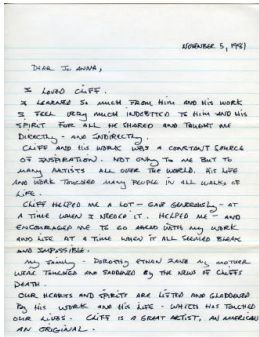 NOVEMBER 5, 1981
DEAR JO ANNA,
I LOVED CLIFF.
I LEARNED SO MUCH FROM HIM AND HIS WORK
I FEEL VERY MUCH INDEBTED TO HIM AND HIS
SPIRIT FOR ALL HE SHARED AND TAUGHT ME
DIRECTLY - AND INDIRECTLY.
CLIFF AND HIS WORK WAS A CONSTANT SOURCE
OF INSPIRATION. NOT ONLY TO ME BUT TO
MANY ARTISTS ALL OVER THE WORLD. HIS LIFE
AND WORK TOUCHED MANY PEOPLE IN ALL WALKS OF
LIFE.
CLIFF HELPED ME A LOT - GAVE GENEROUSLY - AT
A TIME WHEN I NEEDED IT. HELPED ME - AND
ENCOURAGED ME TO GO AHEAD WITH MY WORK
AND LIFE AT A TIME WHEN IT ALL SEEMED BLEAK
AND IMPOSSIBLE.
MY FAMILY - DOROTHY ETHON ZANE MY MOTHER
WERE TOUCHED AND SADDENED BY THE NEWS OF CLIFF'S
DEATH.
OUR HEARTS AND SPIRITS ARE LIFTED AND GLADDENED
BY HIS WORK AND HIS LIFE - WHICH HAS TOUCHED
OUR LIVES. CLIFF IS A GREAT ARTIST, AN AMERICAN
AN ORIGINAL.